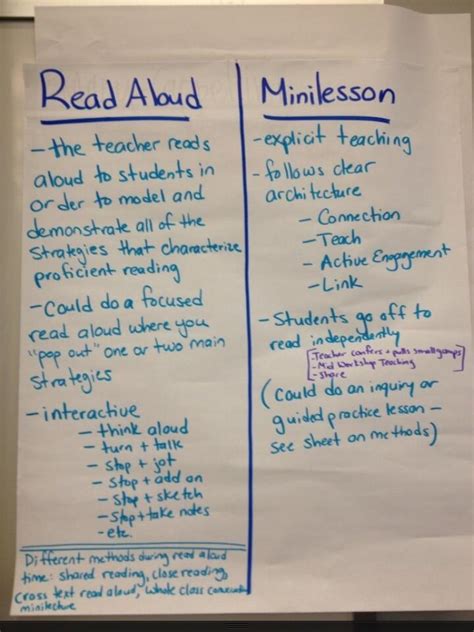 Read Aloud
- the teacher reads
aloud to students in
order to model and
demonstrate all of the
strategies that characterize
proficient reading
- Could do a focused
read aloud where you
"pop out" one or two main
strategies
- interactive
- think aloud
- turn + talk
- stop + jot
- stop + add on
- stop + sketch
- stop + take notes
- etc.
Different methods during read aloud
time: shared reading, close reading,
cross text read aloud, whole class
minilecture
Minilesson
- explicit teaching
- follows clear
architecture
- Connection
- Teach
- Active Engagement
- Link
- Students go off to
read independently
- Teacher confers + pulls small groups
- Mid Workshop Teaching
- Share
(Could do an inquiry or
guided practice lesson -
see sheet on methods)